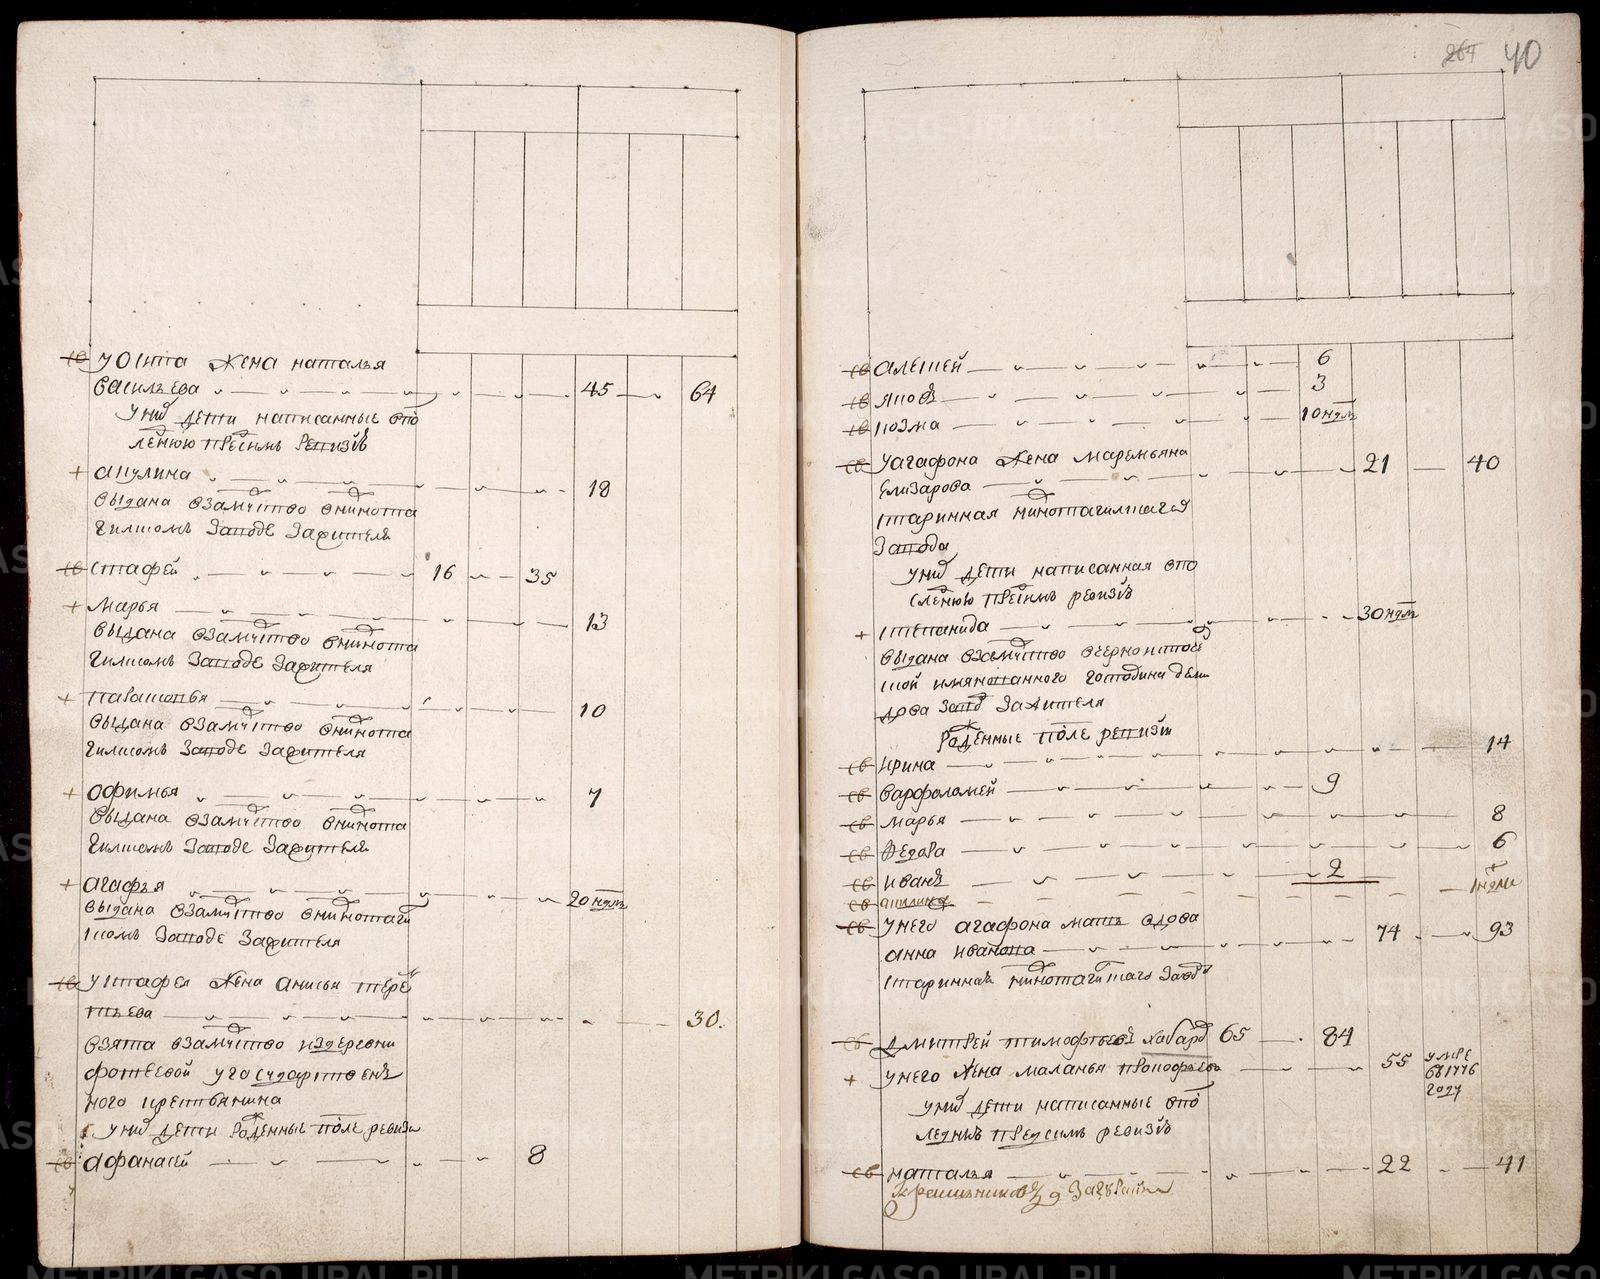 у осипа жена наталья
васильева 45 64
у них дети написанные в по
следнюю пред сим ревизiю
+ акулина 18
выдана взамужство в нижнота
гилском заводе за жителя
стафей 16 35
+ марья 13
выдана взамужство в нижнота
гилском заводе за жителя
+ парасковья 10
выдана взамужство в нижнота
гилском заводе за жителя
+ офимья 7
выдана взамужство в нижнота
гилском заводе за жителя
+ агафья 20 недель
выдана взамужство в нижнотаги
лском заводе за жителя
у стафея жена анисья терен
тьева 30.
взята взамужство из деревни
фотеевой у государственнаго
крестьянина
у них дети рожденные после ревизи
афанасей 8
264 40
св алексей 6
св яков 3
св козма 10 недель
св у агафона жена маремьяна 21 40
елизарова
старинная нижнотагилскаго
завода
у них дети написанная в по
следнюю пред сим ревизiю
+ степанида 30 недель
выдана взамужство в черноисточин
ской имянованного господина деми
дова завод за жителя
рожденные после ревизiи
св ирина 14
св варфоломей 9
св марья 8
св федора 6
св иван 2
св
св у него агафона мать вдова
анна иванова 74 93
старинная нижнотагилскаго завода
св дмитрей тимофеев хабаров 65 84
+ у него жена маланья прокофьева 55 умре
в 1776
году
у них дети написанные в по
следнюю пред сим ревизiю
св наталья 22 41
METRIKI.GASO-URAL.RU